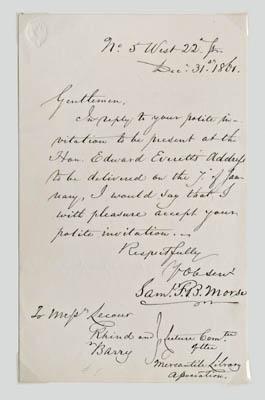 No 5 West 22d St.
Decr. 31st 1861.
Gentlemen,
In reply to your polite in-
vitation to be present at the
Hon. Edward Everett's Address
to be delivered on the 7th of Jan-
uary, I would say that I
with pleasure accept your
polite invitation.
Respectfully
Yr Ob serv
Saml. F. B. Morse
To Messrs
Rhind and
Barry
Lecture Comtee
of the
Mercantile Library
Association.